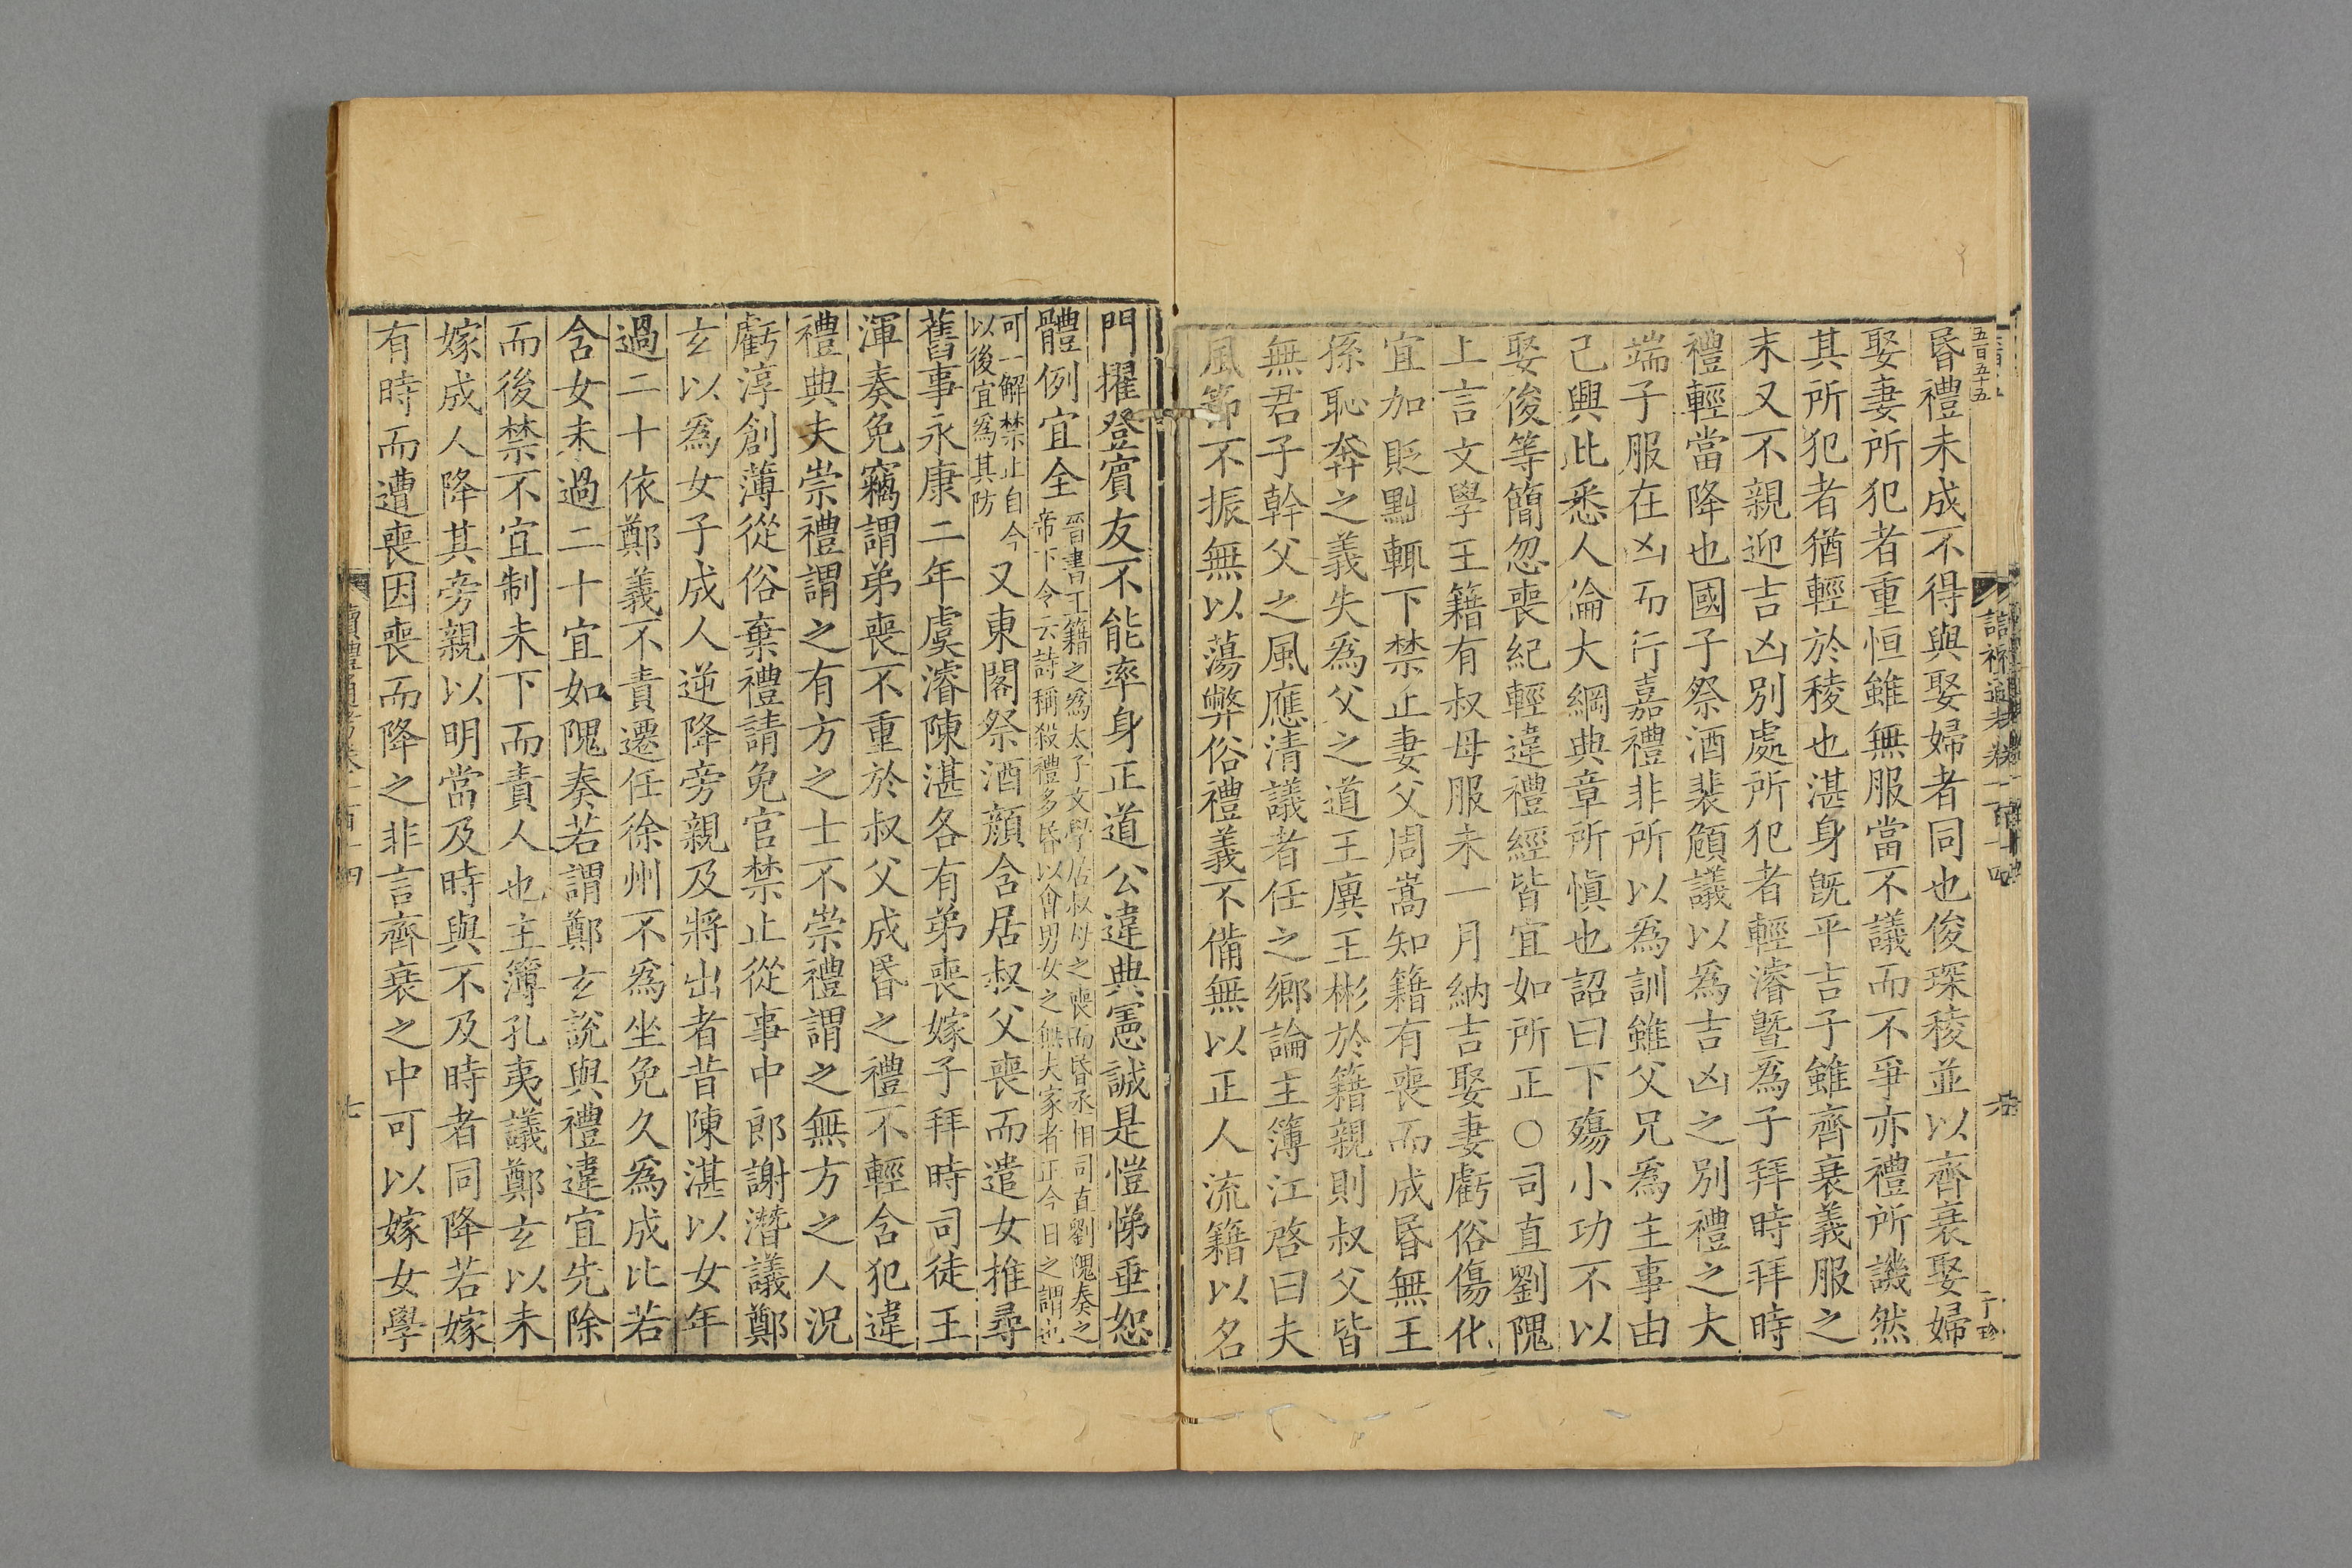 五百五十五
昏禮未成不得與娶婦者同也俊琛稜並以齊衰娶婦
娶妻所犯者重恒雖無服當不議而不爭亦禮所譏然
其所犯者猶輕於稜也湛身旣平吉子雖齊衰義服之
末又不親迎吉凶別處所犯者輕濬曁爲子拜時拜時
禮輕當降也國子祭酒裴頠議以爲吉凶之別禮之大
端子服在凶而行嘉禮非所以爲訓雖父兄爲主事由
己興此悉人倫大綱典章所愼也詔曰下殤小功不以
娶俊等簡忽喪紀輕違禮經皆宜如所正○司直劉隗
上言文學王籍有叔母服未一月納吉娶妻虧俗傷化
宜加貶黜輒下禁止妻父周嵩知籍有喪而成昏無王
孫恥奔之義失爲父之道王廙王彬於籍親則叔父皆
無君子幹父之風應清議者任之鄉論主簿江啓曰夫
風節不振無以蕩弊俗禮義不備無以正人流籍以名
門擢登賓友不能率身正道公違典憲誠是愷悌垂恕
體例宜全晉書王籍之爲太子文學居叔母之喪而昏丞相司直劉隗奏之
帝下令云詩稱殺禮多昏以會男女之無夫家者正今日之謂也
可一解禁止自今
以後宜爲其防又東閣祭酒顏含居叔父喪而遣女推尋
舊事永康二年虞濬陳湛各有弟喪嫁子拜時司徒王
渾奏免竊謂弟喪不重於叔父成昏之禮不輕含犯違
禮典夫崇禮謂之有方之士不崇禮謂之無方之人況
虧淳創薄從俗棄禮請免官禁止從事中郎謝潛議鄭
玄以爲女子成人逆降旁親及將出者昔陳湛以女年
過二十依鄭義不責遷任徐州不爲坐免久爲成比若
含女未過二十宜如隗奏若謂鄭玄說與禮違宜先除
而後禁不宜制未下而責人也主簿孔夷議鄭玄以未
嫁成人降其旁親以明當及時與不及時者同降若嫁
有時而遭喪因喪而降之非言齊衰之中可以嫁女學
讀禮通考卷一百十四
七